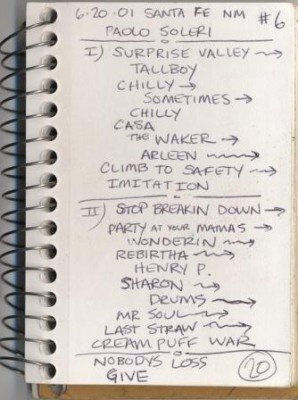 6·20·01 SANTA FE NM #6
PAOLO SOLERI
I) SURPRISE VALLEY →
TALLBOY
CHILLY →
SOMETIMES →
CHILLY
CASA
THE WAKER →
ARLEEN →
CLIMB TO SAFETY →
IMITATION
II) STOP BREAKIN DOWN →
PARTY AT YOUR MAMAS →
WONDERIN →
REBIRTHA →
HENRY P.
SHARON →
DRUMS →
MR SOUL →
LAST STRAW →
CREAM PUFF WAR
NOBODYS LOSS
GIVE
20